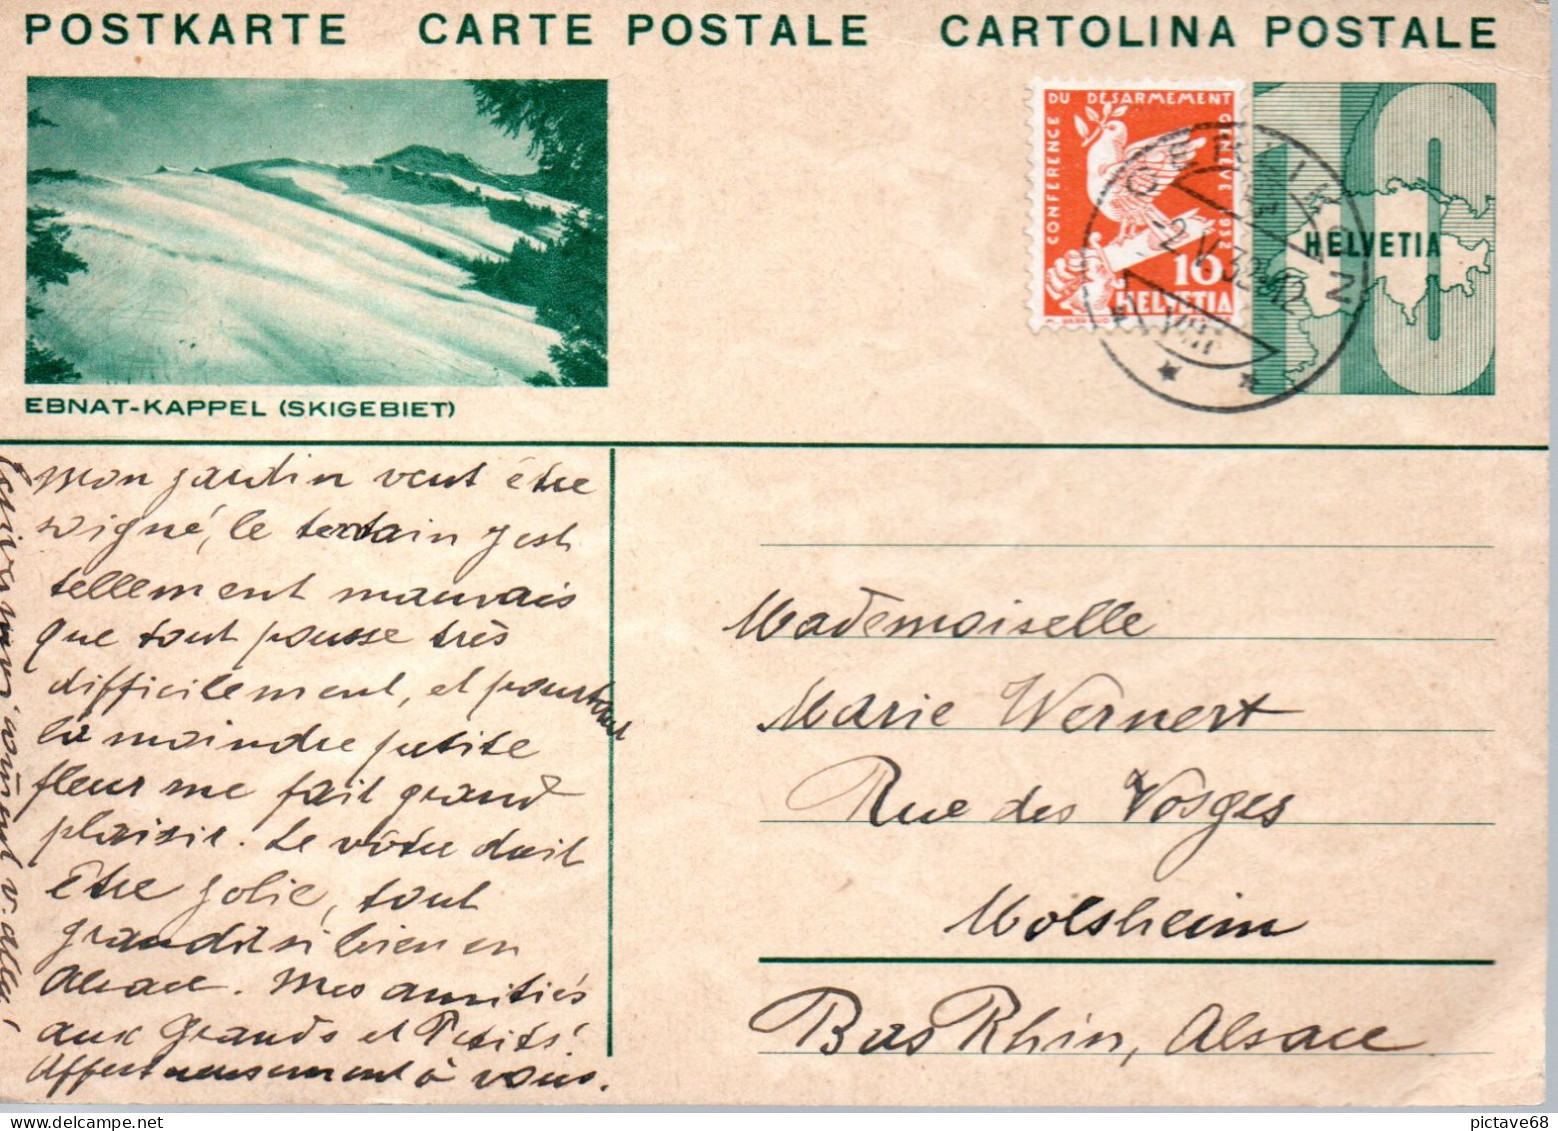 POSTKARTE CARTE POSTALE CARTOLINA POSTALE
CONFERENCE DU DÉSARMEMENT GENÈVE 1932
10
HELVETIA
HELVETIA
10
OERLIKON
-2.V.32-12
VIII
EBNAT-KAPPEL (SKIGEBIET)
mon jardin veut être
soigné, le terrain y est
tellement mauvais
que tout pousse très
difficilement, et pourtant
la moindre petite
fleur me fait grand
plaisir. Le vôtre doit
être jolie, tout
grandit si bien en
Alsace. Mes amitiés
aux Grands et Petits!
Affectueusement à vous.
Ecrivez moi souvent
Mademoiselle
Marie Wernert
Rue des Vosges
Molsheim
Bas Rhin, Alsace
pictave68